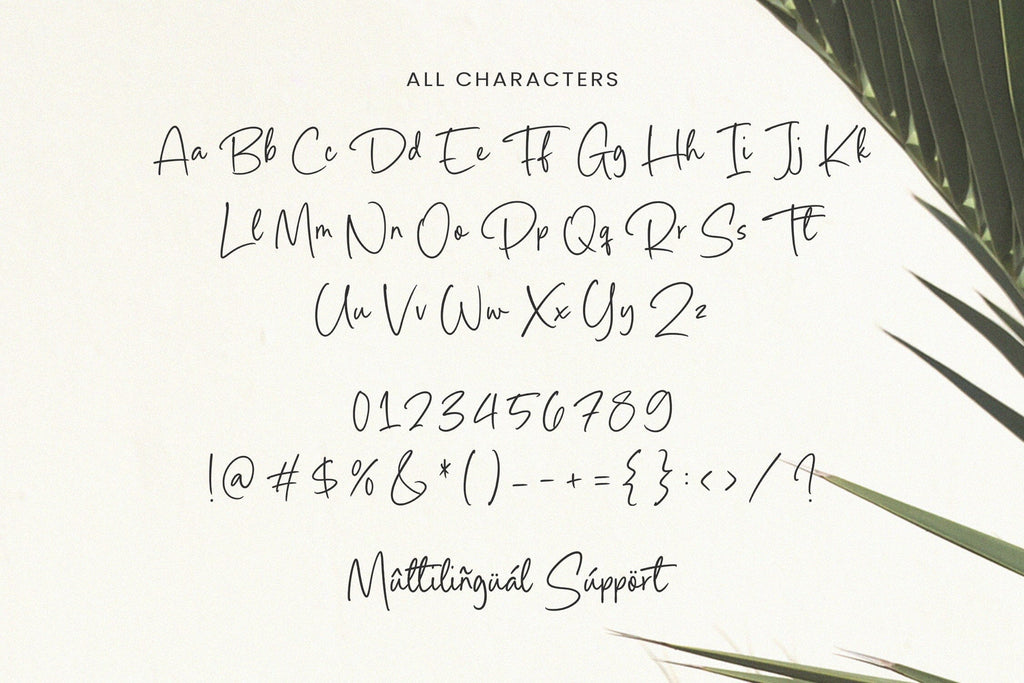 ALL CHARACTERS
Aa Bb Cc Dd Ee Ff Gg Hh Ii Jj Kk
Ll Mm Nn Oo Pp Qq Rr Ss Tt
Uu Vv Ww Xx Yy Zz
0123456789
!@#$%&*()_-+={}:<>/?
Mâttiliñgüál Súppört